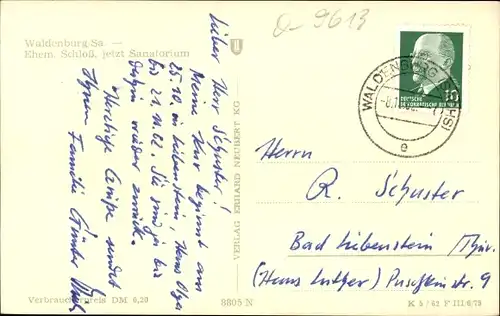 Waldenburg/Sa. —
Ehem. Schloß, jetzt Sanatorium
9613
Lieber Herr Schuster!
Meine Kur beginnt am
25.10. in Liebenstein, Haus Olga
bis 21.11.62. Sie sind ja bis
dahin wieder zurück.
Herzliche Grüße sendet
Ihnen Familie Günter
VERLAG ERHARD NEUBERT KG
WALDENBURG (SACHS)
e
10
DEUTSCHE
DEMOKRATISCHE REPUBLIK
Herrn
R. Schuster
Bad Liebenstein Thür.
(Haus Luther) Puschkinstr. 9
Verbraucherpreis DM 0,20
8805 N
K 5 / 62 F III/6/73